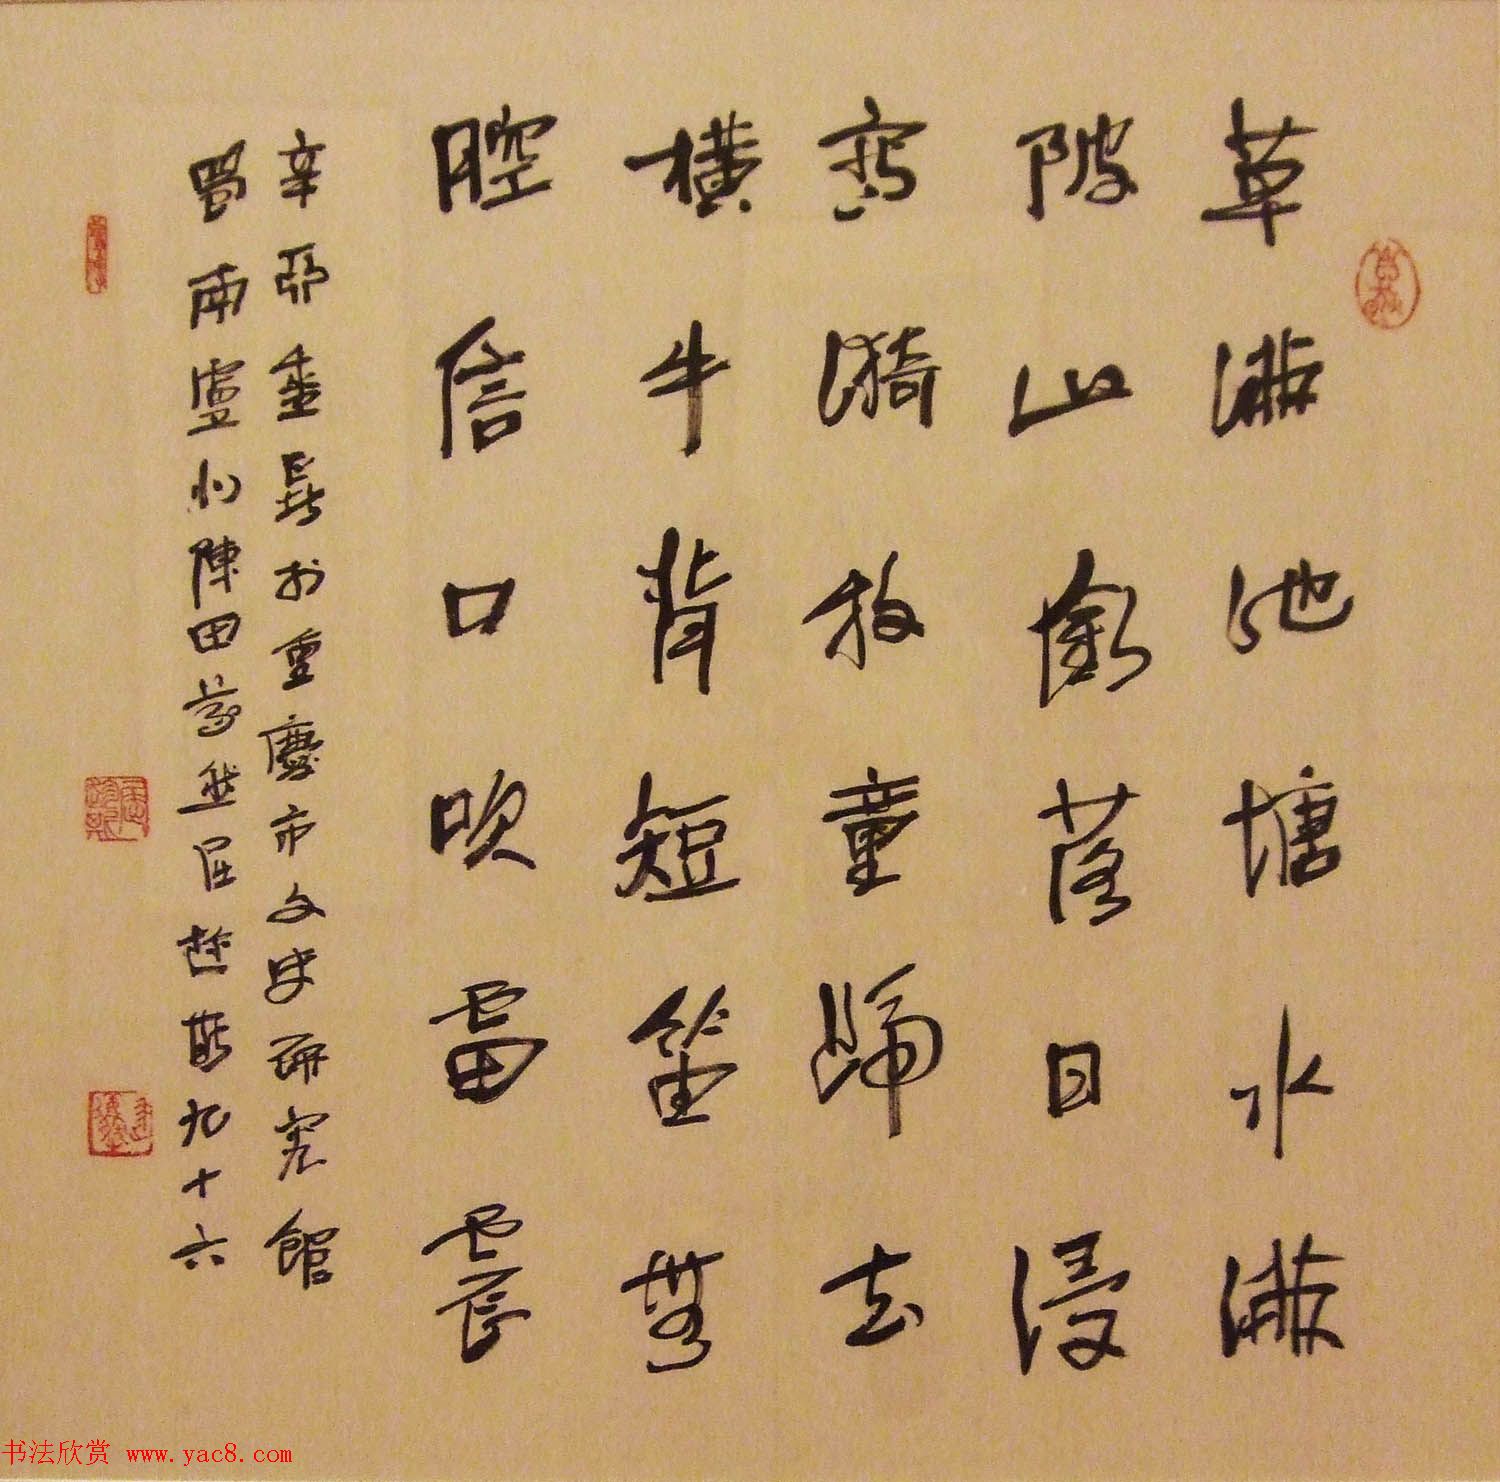 草滿池塘水滿
陂山銜落日浸
寒漪牧童歸去
橫牛背短笛無
腔信口吹雷震
辛重慶市文史研究館
陳田屈趁斯九十六
书法欣赏 www.yac8.com